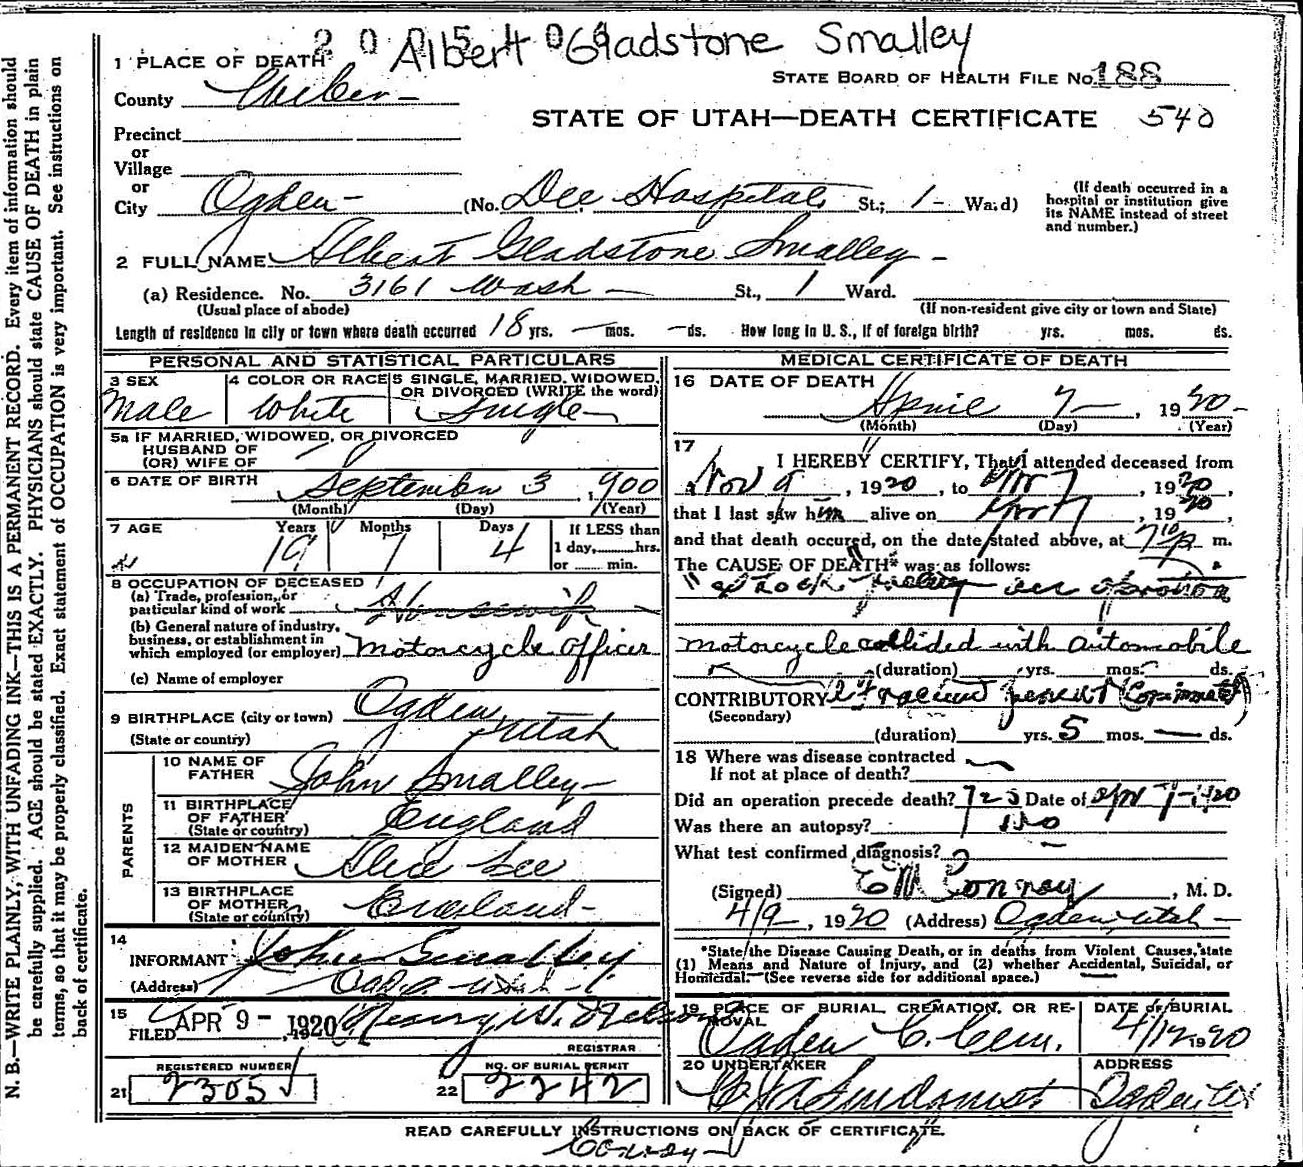 Albert Gladstone Smalley
1 PLACE OF DEATH
STATE BOARD OF HEALTH FILE No. 188
County Weber
STATE OF UTAH—DEATH CERTIFICATE 540
Precinct
or
Village
or
City Ogden (No. Dee Hospital St.; 1 Ward)
(If death occurred in a hospital or institution give its NAME instead of street and number.)
2 FULL NAME Albert Gladstone Smalley
(a) Residence. No. 3161 Wash St., 1 Ward.
(Usual place of abode) (If non-resident give city or town and State)
Length of residence in city or town where death occurred 18 yrs. — mos. — ds. How long in U. S., if of foreign birth? yrs. mos. ds.
PERSONAL AND STATISTICAL PARTICULARS
3 SEX Male
4 COLOR OR RACE White
5 SINGLE, MARRIED, WIDOWED, OR DIVORCED (WRITE the word) Single
5a IF MARRIED, WIDOWED, OR DIVORCED
HUSBAND OF
(OR) WIFE OF
6 DATE OF BIRTH September 3, 1900
(Month) (Day) (Year)
7 AGE Years 19 Months 7 Days 4 If LESS than 1 day, hrs. or min.
8 OCCUPATION OF DECEASED
(a) Trade, profession, or
particular kind of work
(b) General nature of industry,
business, or establishment in
which employed (or employer) motorcycle officer
(c) Name of employer
9 BIRTHPLACE (city or town) Ogden,
(State or country) Utah
PARENTS
10 NAME OF FATHER John Smalley
11 BIRTHPLACE OF FATHER (State or country) England
12 MAIDEN NAME OF MOTHER Alice Lee
13 BIRTHPLACE OF MOTHER (State or country) England
14
INFORMANT John Smalley
(Address) Ogden Utah
15
FILED APR 9 - 1920
REGISTRAR
REGISTERED NUMBER
21 2305
NO. OF BURIAL PERMIT
22 2242
MEDICAL CERTIFICATE OF DEATH
16 DATE OF DEATH
April 7, 1920
(Month) (Day) (Year)
17
I HEREBY CERTIFY, That I attended deceased from
Nov 9, 1920, to Apr 7, 1920,
that I last saw him alive on Apr 7, 1920,
and that death occured, on the date stated above, at 7 10 p m.
The CAUSE OF DEATH* was as follows:
motorcycle collided with automobile
(duration) yrs. mos. ds.
CONTRIBUTORY
(Secondary)
(duration) yrs. 5 mos. — ds.
18 Where was disease contracted
If not at place of death?
Did an operation precede death? yes Date of Apr 7-1920
Was there an autopsy? no
What test confirmed diagnosis?
(Signed) E M Conroy, M. D.
4/9, 1920 (Address) Ogden Utah
*State the Disease Causing Death, or in deaths from Violent Causes, state
(1) Means and Nature of Injury, and (2) whether Accidental, Suicidal, or
Homicidal. (See reverse side for additional space.)
19 PLACE OF BURIAL, CREMATION, OR REMOVAL Ogden C. Cem.
DATE of BURIAL 4/12 1920
20 UNDERTAKER
ADDRESS Ogden
READ CAREFULLY INSTRUCTIONS ON BACK OF CERTIFICATE.
Conroy
N. B.—WRITE PLAINLY, WITH UNFADING INK—THIS IS A PERMANENT RECORD. Every item of information should
be carefully supplied. AGE should be stated EXACTLY. PHYSICIANS should state CAUSE OF DEATH in plain
terms, so that it may be properly classified. Exact statement of OCCUPATION is very important. See instructions on
back of certificate.